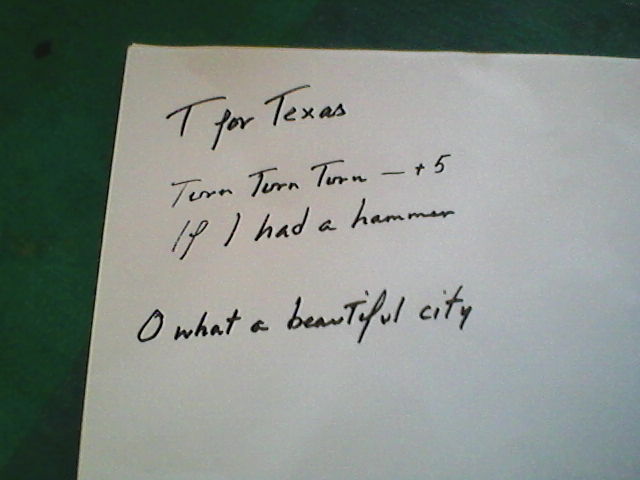 T for Texas
Turn Turn Turn - +5
If I had a hammer
O what a beautiful city